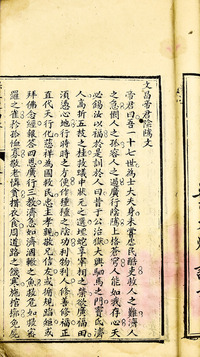 文昌帝君陰騭文
帝君曰吾一十七世為士大夫身未嘗虐民酷吏救人之難濟人
之急憫人之孤容人之過廣行陰騭上格蒼穹人能如我存心天
必錫汝以福於是訓於人曰昔于公治獄大興駟馬之門竇氏濟
人高折五枝之桂救蟻中狀元之選埋蛇享宰相之榮欲廣福田
須憑心地行時時之方便作種種之陰功利物利人修善修福正
直代天行化慈祥為國救民忠主孝親敬兄信友或斗或
拜佛念經報答四恩廣行三教濟急如濟涸轍之魚救危如救密
羅之雀矜孤恤寡敬老憐貧措衣食周道路之飢寒施棺槨免屍